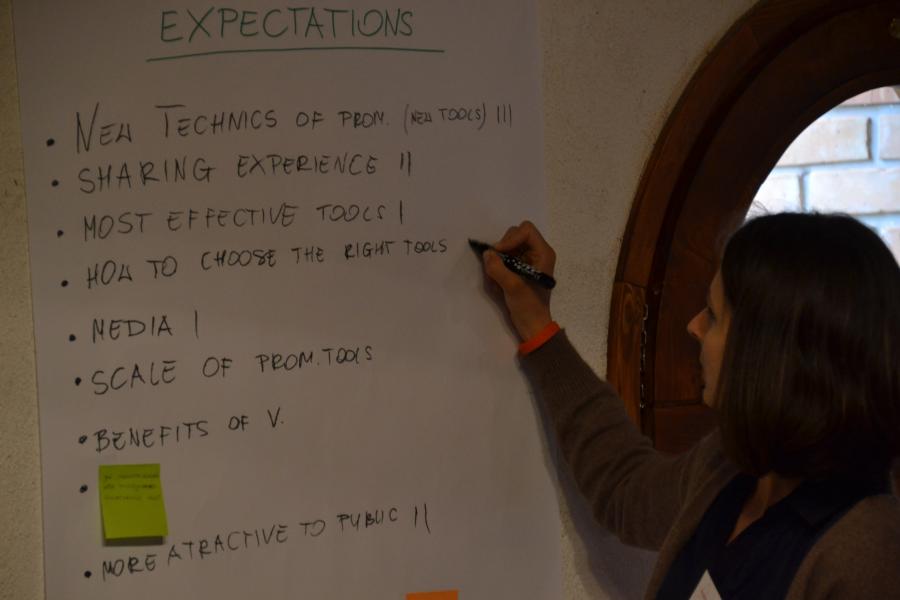 EXPECTATIONS
• NEW TECHNICS OF PROM. (NEW TOOLS) |||
• SHARING EXPERIENCE ||
• MOST EFFECTIVE TOOLS |
• HOW TO CHOOSE THE RIGHT TOOLS
• MEDIA |
• SCALE OF PROM. TOOLS
• BENEFITS OF V.
•
• MORE ATRACTIVE TO PUBLIC ||